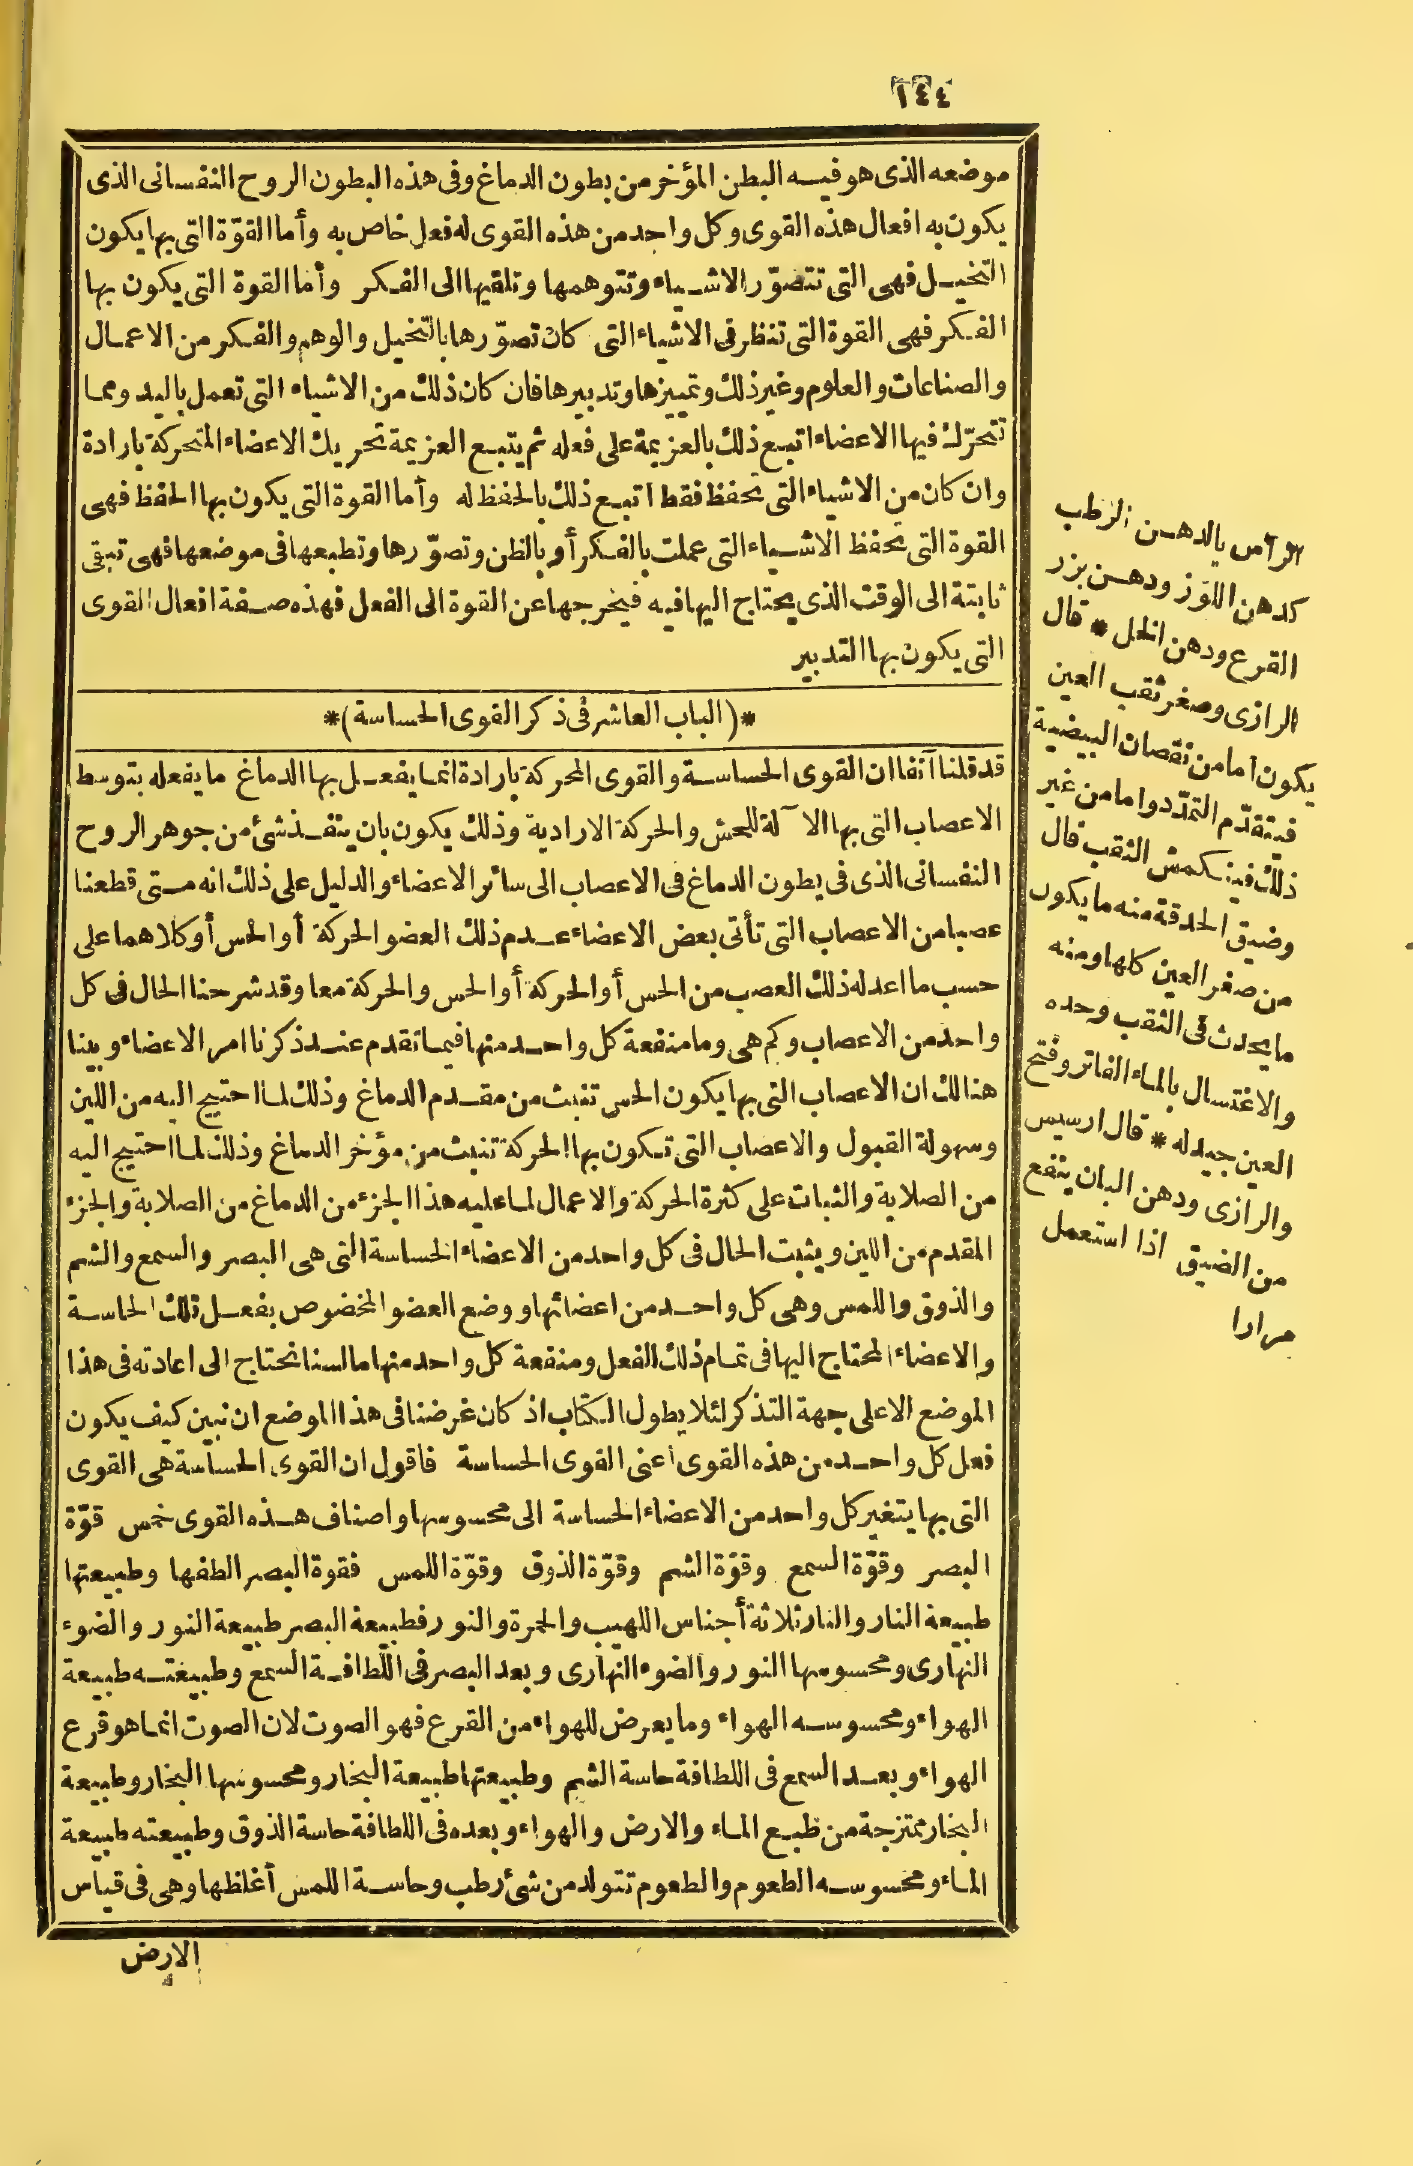 ١٤٤
موضعه الذى هو فيه البطن المؤخر من بطون الدماغ وفى هذه البطون الروح النفسانى الذى
يكون به افعال هذه القوى وكل واحد من هذه القوى له فعل خاص به وأما القوّة التى بها يكون
التخيل فهى التى تتصوّر الاشياء وتتوهمها وتلقيها الى الفكر وأما القوة التى يكون بها
الفكر فهى القوة التى تنظر فى الاشياء التى كان تصوّرها بالتخيل والوهم والفكر من الاعمال
والصناعات والعلوم وغير ذلك وتمييزها وتدبيرها فان كان ذلك من الاشياء التى تعمل باليد ومما
تتحرّك فيها الاعضاء اتبع ذلك بالعزيمة على فعله ثم يتبع العزيمة تحريك الاعضاء المتحركة بارادة
وان كان من الاشياء التى تحفظ فقط اتبع ذلك بالحفظ له وأما القوة التى يكون بها الحفظ فهى
القوة التى تحفظ الاشياء التى عملت بالفكر أو بالظن وتصوّرها وتطبعها فى موضعها فهى تبقى
ثابتة الى الوقت الذى يحتاج اليها فيه فيخرجها عن القوة الى الفعل فهذه صفة افعال القوى
التى يكون بها التدبير
*(الباب العاشر فى ذكر القوى الحساسة)*
قد قلنا آنفا ان القوى الحساسة والقوى المحركة بارادة انما يفعل بها الدماغ ما يفعله بتوسط
الاعصاب التى بها الآلة للحس والحركة الارادية وذلك يكون بان ينفذ شئ من جوهر الروح
النفسانى الذى فى بطون الدماغ فى الاعصاب الى سائر الاعضاء والدليل على ذلك انه متى قطعنا
عصبا من الاعصاب التى تأتى بعض الاعضاء عدم ذلك العضو الحركة أو الحس أو كلاهما على
حسب ما اعد له ذلك العصب من الحس أو الحركة أو الحس والحركة معا وقد شرحنا الحال فى كل
واحد من الاعصاب وكم هى وما منفعة كل واحد منها فيما تقدم عند ذكرنا امر الاعضاء وبينا
هنالك ان الاعصاب التى بها يكون الحس تنبث من مقدم الدماغ وذلك لما احتيج اليه من اللين
وسهولة القبول والاعصاب التى تكون بها الحركة تنبث من مؤخر الدماغ وذلك لما احتيج اليه
من الصلابة والثبات على كثرة الحركة والاعمال لما عليه هذا الجزء من الدماغ من الصلابة والجزء
المقدم من اللين ويثبت الحال فى كل واحد من الاعضاء الحساسة التى هى البصر والسمع والشم
والذوق واللمس وهى كل واحد من اعضائها ووضع العضو المخصوص بفعل تلك الحاسة
والاعضاء المحتاج اليها فى تمام ذلك الفعل ومنفعة كل واحد منها ما لسنا نحتاج الى اعادته فى هذا
الموضع الا على جهة التذكر لئلا يطول الكتاب اذ كان غرضنا فى هذا الموضع ان نبين كيف يكون
فعل كل واحد من هذه القوى اعنى القوى الحساسة فاقول ان القوى الحساسة هى القوى
التى بها يتغير كل واحد من الاعضاء الحساسة الى محسوسها واصناف هذه القوى خمس قوّة
البصر وقوّة السمع وقوّة الشم وقوّة الذوق وقوّة اللمس فقوة البصر الطفها وطبيعتها
طبيعة النار والنار ثلاثة أجناس اللهيب والجمرة والنور فطبيعة البصر طبيعة النور والضوء
النهارى ومحسوسها النور والضوء النهارى وبعد البصر فى اللطافة السمع وطبيعته طبيعة
الهواء ومحسوسه الهواء وما يعرض للهواء من القرع فهو الصوت لان الصوت انما هو قرع
الهواء وبعد السمع فى اللطافة حاسة الشم وطبيعتها طبيعة البخار ومحسوسها البخار وطبيعة
البخار ممتزجة من طبع الماء والارض والهواء وبعده فى اللطافة حاسة الذوق وطبيعته طبيعة
الماء ومحسوسه الطعوم والطعوم تتولد من شئ رطب وحاسة اللمس أغلظها وهى فى قياس
الارض
الرأس بالدهن الرطب
كدهن اللوز ودهن بزر
القرع ودهن الخل * قال
الرازى وصغر ثقب العين
يكون اما من نقصان البيضية
فيتقدّم التمدّد واما من غير
ذلك فينكمش الثقب قال
وضيق الحدقة منه ما يكون
من صغر العين كلها ومنه
ما يحدث فى الثقب وحده
والاغتسال بالماء الفاتر وفتح
العين جيد له * قال ارسيس
والرازى ودهن البان ينفع
من الضيق اذا استعمل
مرارا